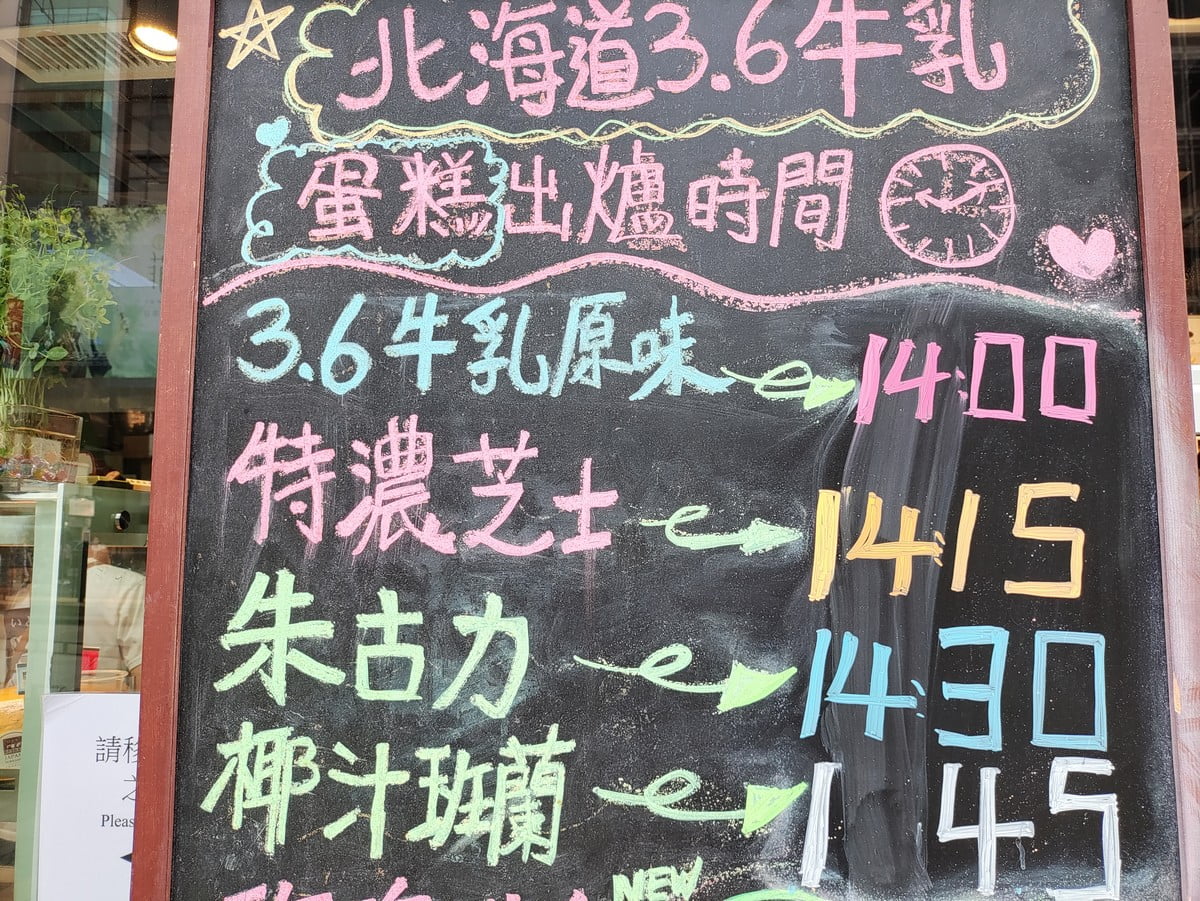 北海道3.6牛乳
蛋糕出爐時間
3.6牛乳原味 14:00
特濃芝士 14:15
朱古力 14:30
椰汁班蘭 1 45
NEW
請移
之
Pleas